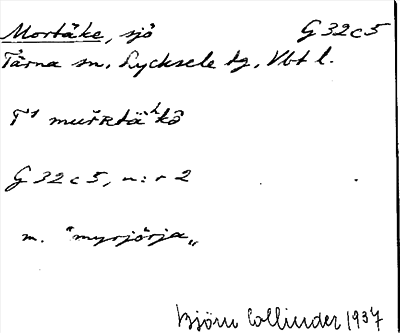 Mortåke, sjö G 32 c 5
Tärna sn, Lycksele tg, Vbt l.
G 32 c 5, n:r 2
m. "myrjörja"
Björn Collinder 1937